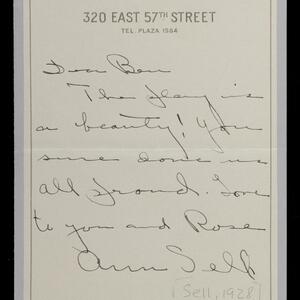 320 EAST 57TH STREET
TEL. PLAZA 1984
Dear Ben
The play is
a beauty! You
sure done us
all proud. Love
to you and Rose
Ann Selk
[Sell, 1928]